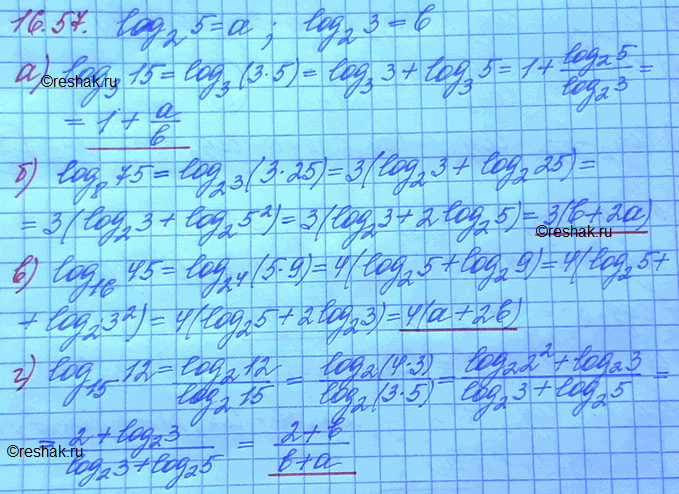 16.57. log₂ 5 = a ; log₂ 3 = b
а) log₃ 15 = log₃ (3·5) = log₃ 3 + log₃ 5 = 1 + log₂5/log₂3 =
= 1 + a/b
б) log₈ 75 = log₂³ (3·25) = 3(log₂ 3 + log₂ 25) =
= 3(log₂ 3 + log₂ 5²) = 3(log₂ 3 + 2 log₂ 5) = 3(b + 2a)
в) log₁₆ 45 = log₂⁴ (5·9) = 4(log₂ 5 + log₂ 9) = 4(log₂ 5 +
+ log₂ 3²) = 4(log₂ 5 + 2 log₂ 3) = 4(a + 2b)
г) log₁₅ 12 = log₂ 12/log₂ 15 = log₂ (4·3)/log₂ (3·5) = (log₂ 2² + log₂ 3)/(log₂ 3 + log₂ 5) =
= (2 + log₂ 3)/(log₂ 3 + log₂ 5) = (2 + b)/(b + a)
©reshak.ru
©reshak.ru
©reshak.ru
©reshak.ru